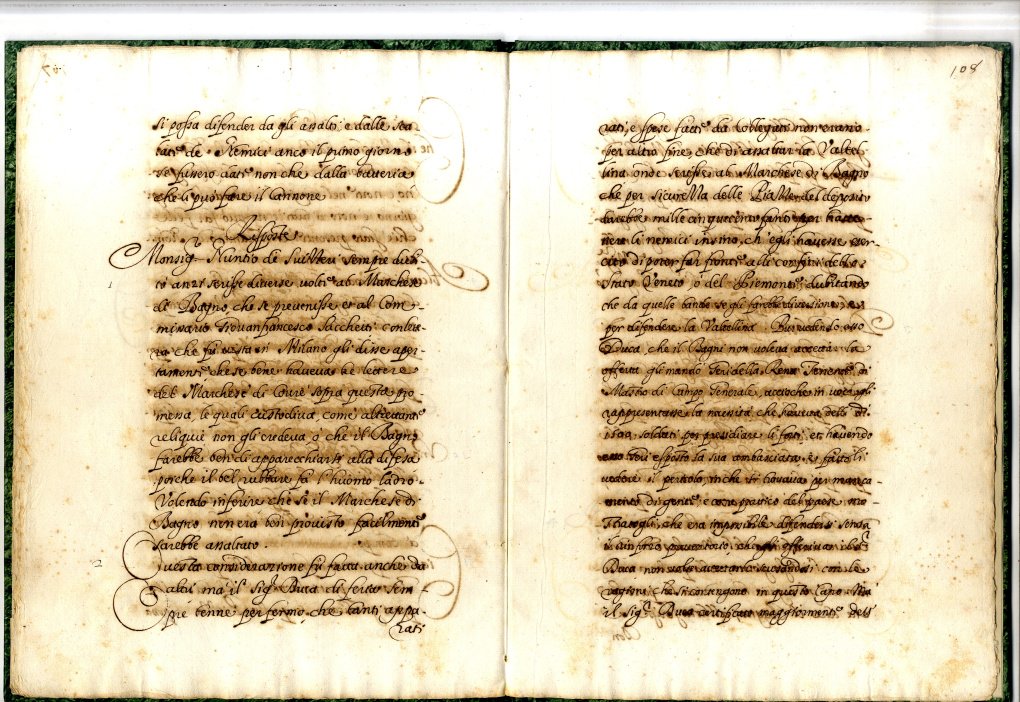 107
si possa difender da gli assalti, e dalle scu
tati de Nemici anco il primo giorno
se fussero dati non che dalla batteria
che li può fare il Cannone
Risposte
1
Monsigr Nuntio de Suizzeri sempre dubi
tò anzi scrisse diverse volte al Marchese
di Bagno che si prevenisse et al Com
missario Giovanfrancesco Sacchetti con l'ettu
ra che fu vista in Milano gli disse aper
tamente che se bene haveva tre lettere
del Marchese di Couré sopra questa pro
messa, le quali custodiva, come altrettante
reliquie non gli credeva, o che il Bagno
farebbe ben di apparecchiarsi alla difesa
perche il bel rubbare fa l'huomo ladro
Volendo inferire che se il Marchese di
Bagno non era ben provisto facilmente
sarebbe assaltato.
2
Questa considerazione fu fatta anche da
altri ma il sigr Duca di feria sem
pre tenne per fermo, che tanti appa
rati
108
rati, e spese fatte da Collegati non erano
per altro fine, che di assaltar la Valtel
lina onde scrisse al Marchese di Bagno
che per sicurezza delle Piazze del deposito
darebbe mille cinquecento fanti per tratte
nere li nemici insino, ch'egli havesse cer
cato di poter far fronte alle confini dello
stato Veneto, o del Piemonte, dubitando
che da quelle bande se gli farebbe diversione
per difendere la Valtellina Ma vedendo esso
Duca, che il Bagni non voleva accettar la
offerta gli mandò Tenente di
Mastro di Campo Generale, accioche in voce gli
rappresentasse la necessità che haveva delli
soldati per presidiare li forti, et havendo
esposto la sua ambasciata, et fattoli
vedere il pericolo, in che si trovava per manca
mento di gente, e come pratico del paese mo
stratogli, che era impossibile difendersi senza
il rinforzo che offeriva il sr
Duca non volle accettarlo scusandosi con le
ragioni che si contengono in questo Capo Ma
il sigr Duca certificato maggiormente dell